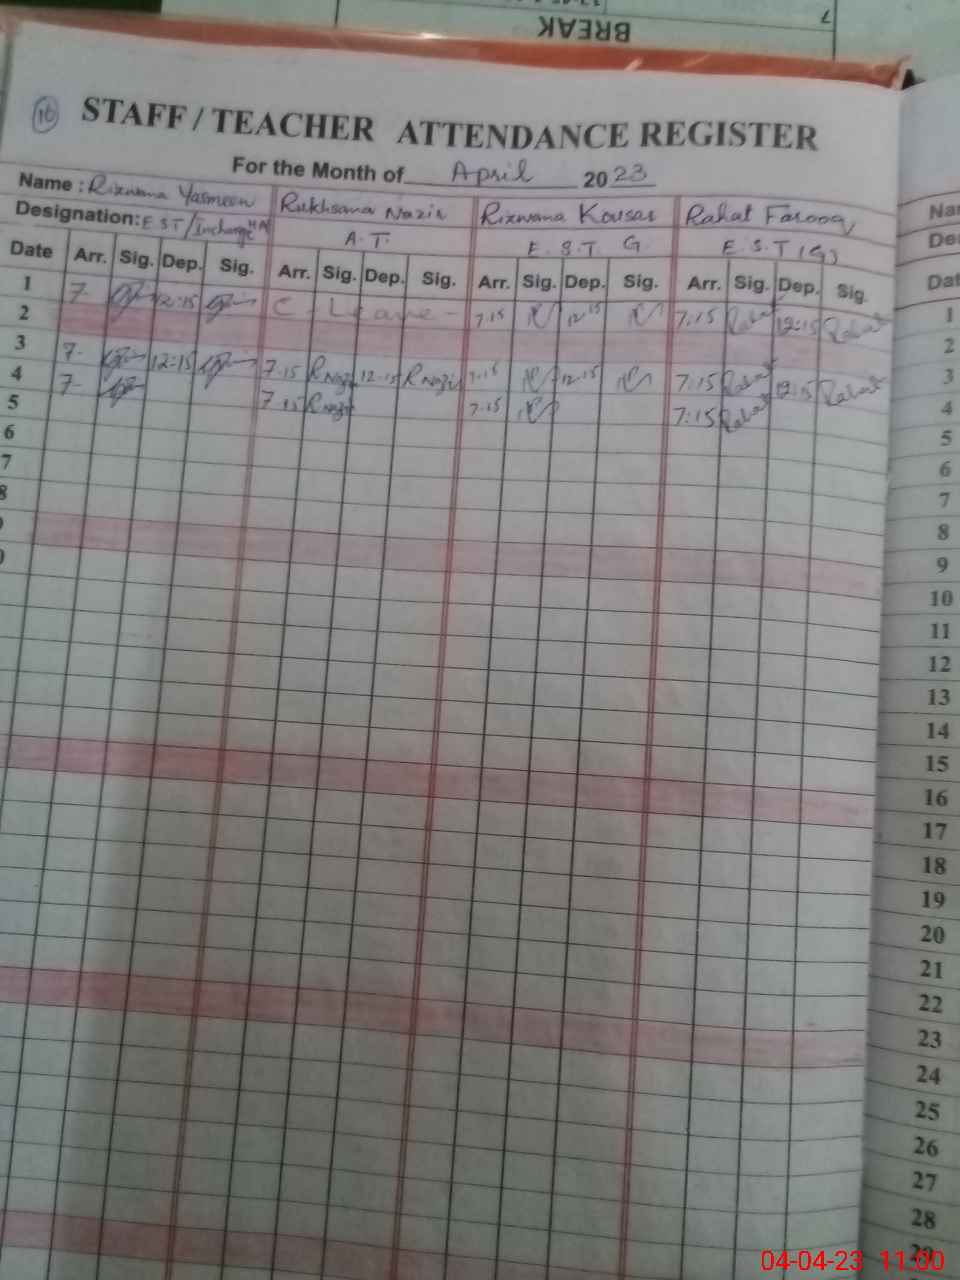 BREAK
7
16
STAFF / TEACHER ATTENDANCE REGISTER
For the Month of April 2023
Name : Rizwana Yasmeen Rukhsana Nazir Rizwana Kousar Rahat Farooq
Designation: EST/Incharge HM A.T. E.S.T G. E.S.T (G)
Date Arr. Sig. Dep. Sig. Arr. Sig. Dep. Sig. Arr. Sig. Dep. Sig. Arr. Sig. Dep. Sig.
1 7- 12:15 C-Leave- 7.15 12.15 7:15 Rahat 12:15 Rahat
2
3 7- 12:15 7.15 RNazir 12.15 RNazir 7.15 12.15 7:15 Rahat 12:15 Rahat
4 7- 7.15 RNazir 7.15 7:15 Rahat
5
6
7
8
9
0
Nam
De
Dat
1
2
3
4
5
6
7
8
9
10
11
12
13
14
15
16
17
18
19
20
21
22
23
24
25
26
27
28
29
04-04-23 11:00